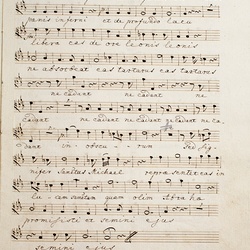 panis inferni et de profundo lacu
libera eas de ore leonis leonis
ne absorbeat eas tartarus eas tartarus
ne cadant ne cadant ne
cadant ne cadant ne cadant ne ca
dant in obscu rum sed sig
nifer Sanctus Michael repraesentet eas in
lu cem sanctam quam olim Abra ha
promisisti et semini ejus
semini ejus